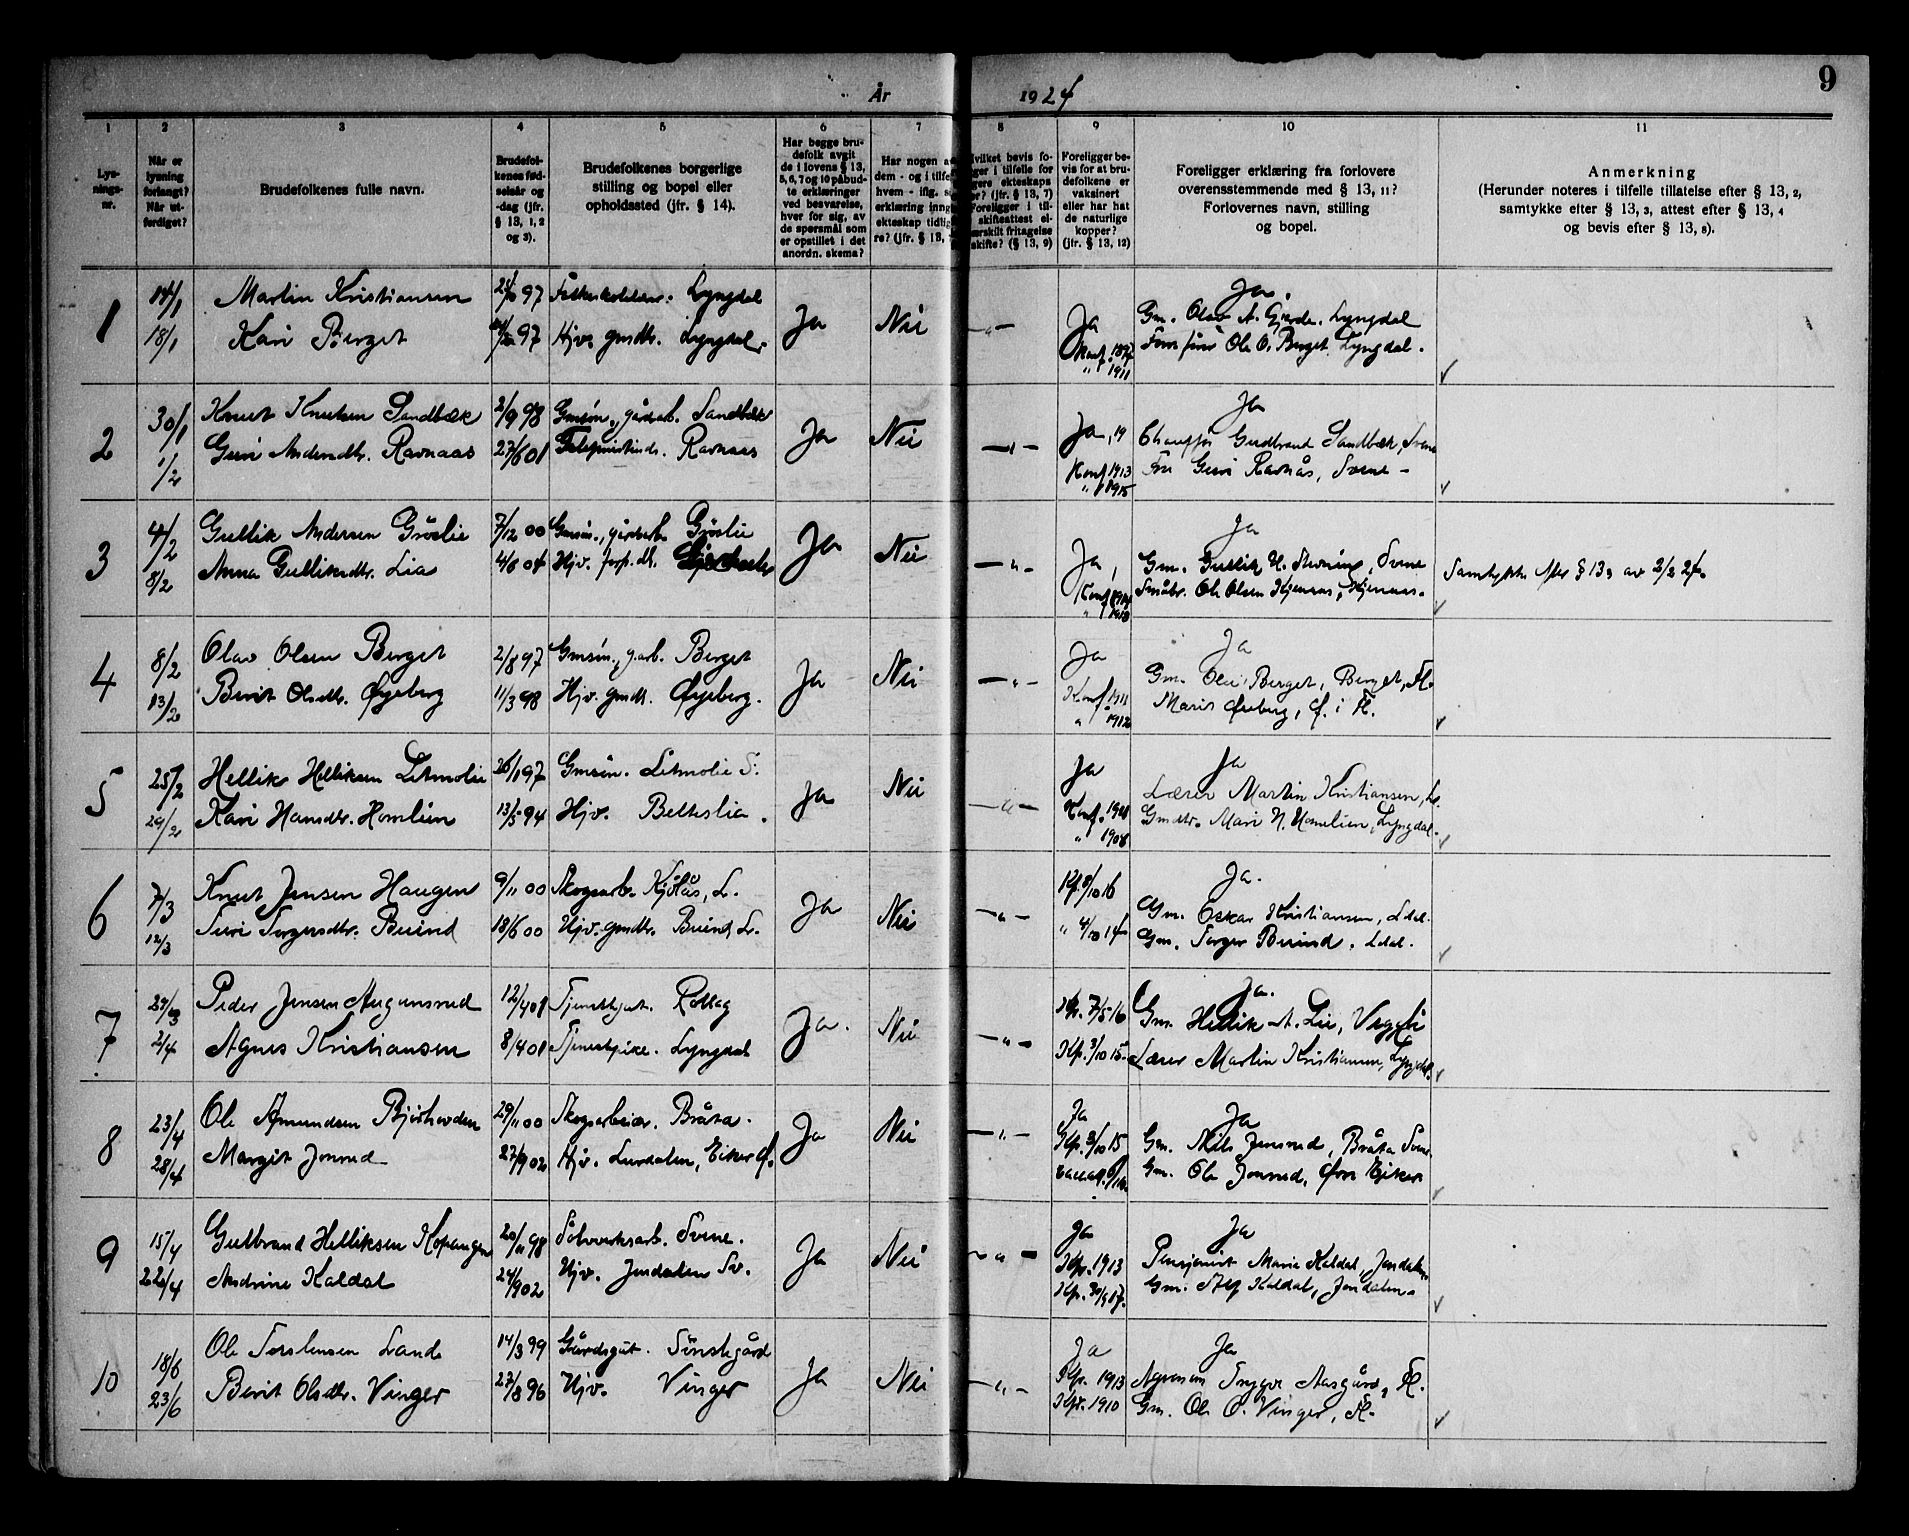 År 1924
9
1 2 3 4 5 6 7 8 9 10 11
Lys-
nings-
nr.
Når er
lysning
forlangt?
Når ut-
ferdiget?
Brudefolkenes fulle navn.
Brudefol-
kenes fød-
selsår og
-dag (jfr.
§ 13, 1, 2
og 3).
Brudefolkenes borgerlige
stilling og bopel eller
opholdssted (jfr. § 14).
Har begge bru-
defolk avgit
de i lovens § 13,
5, 6, 7 og 10 påbud-
te erklæringer
ved besvarelse,
hver for sig, av
de spørsmål som
er opstillet i det
anordn. skema?
Har nogen a
dem - og i tilfe
hvem - iflg. s
erklæring inng
ekteskap tidlig
re? (jfr. § 13,
vilket bevis fo-
ger i tilfelle for
gere ekteskaps
r? (jfr. § 13, 7)
Foreligger i til-
skifteattest el-
ærskilt fritagelse
skifte? (§ 13, 9)
Foreligger be-
vis for at bru-
defolkene er
vaksinert
eller har hat
de naturlige
kopper?
(jfr. § 13, 12)
Foreligger erklæring fra forlovere
overensstemmende med § 13, 11?
Forlovernes navn, stilling
og bopel.
Anmerkning
(Herunder noteres i tilfelle tillatelse efter § 13, 2,
samtykke efter § 13, 3, attest efter § 13, 4
og bevis efter § 13, 8).
1
14/1
18/1
Martin Kristiansen
Kari Berget
97
97
Lyngdal
Hjv. gmdtr. Lyngdal
Ja
Nei
Ja
1911
Ja.
Gm. Olav A. Gjerde. Lyngdal
Ole O. Berget. Lyngdal.
2
30/1
1/2
Knut Knutsen Sandbæk
Guri Andersdtr. Ravnaas
2/9 98
27/6 01
Gmsøn., gårdarb. Sandbæk
Ravnaas
Ja
Nei
Ja
Konf. 1913
" 1915
Ja
Chauffør Gudbrand Sandbæk, Svene
Fru Guri Ravnås, Svene -
3
4/2
8/2
Gullik Andersen Grøslie
Anna Gulliksdtr. Lia
7/12 00
4/6 04
Gmsøn., gårdarb. Grøslie
Hjv. forp. dtr.
Ja
Nei
Ja,
Ja
Gm. Gullik H. Svene
Småbr. Ole Olsen Kjennas, Kjennas.
Samtykke efter § 13 3 av 2/2 24.
4
8/2
13/2
Olav Olsen Berget
Berit Olsdtr. Øygeberg
2/8 97
11/3 98
Gmsøn., g.arb. Berget
Hjv. gmdt. Øygeberg.
Ja
Nei
Ja
Konf. 1911
" 1912
Ja
Gm. Ole Berget, Berget, Fl.
Marit Øieberg, Ø. i Fl.
5
25/2
29/2
Hellik Helliksen Litmolie
Kari Hansdtr. Homlien
26/1 97
13/5 94
Gmsøn. Litmolie S.
Hjv. Belteslia.
Ja
Nei
Ja
" 1908
Ja
Lærer Martin Kristiansen, L.
Gmdtr. Mari H. Homlien, Lyngdal.
6
7/3
12/3
Knut Jensen Haugen
Turi Torgersdtr. Buind
9/11 00
18/6 00
Skogsarb. Kjølås, L.
Hjv. gmdtr. Buind, L.
Ja
Nei
Kf. 8/10 16
" 4/10 14
Ja.
Gm. Oskar Kristiansen, Ldal.
Gm. Torger Buind. Ldal.
7
29/3
2/4
Peder Jensen Augunsrud
Agnes Kristiansen
12/4 01
8/4 01
Tjenestgut. Rollag
Tjenestpike. Lyngdal
Ja.
Nei
Kp. 7/5 16
Kp. 3/10 15
Ja.
Gm. Hellik A. Lie, Veggli
Lærer Martin Kristiansen, Lyngdal.
8
23/4
28/4
Ole Amundsen Bjørhovden
Margit Jonsrud
29/11 00
27/9 02
Skogsarbeider. Bråta.
Hjv. Lurdalen, Eiker Ø.
Ja
Nei
Ja
Kp. 3/10 15
Ja
Gm. Nils Jensrud, Bråta Svene.
Gm. Ole Jonsrud, Øvre Eiker
9
15/4
22/4
Gulbrand Helliksen Kopangen
Andrine Kaldal
20/11 98
24/9 02
Sølvverksarb. Svene.
Hjv. Jondalen Sv.
Ja
Nei
Ja
Kp. 1913
Kp. 30/9 17.
Ja
Pensjonist Marie Kaldal, Jondalen
Gm. Alf Kaldal, Jondalen.
10
18/6
23/6
Ole Torstensen Lande
Berit Olsdtr. Vinger
14/3 99
27/8 96
Gårdsgut. Tinstegård
Hjv. Vinger
Ja
Nei
Ja
Kp. 1913
Kp. 1910
Ja
Agronom Trygve Aasgård, Fl.
Gm. Ole O. Vinger, Fl.